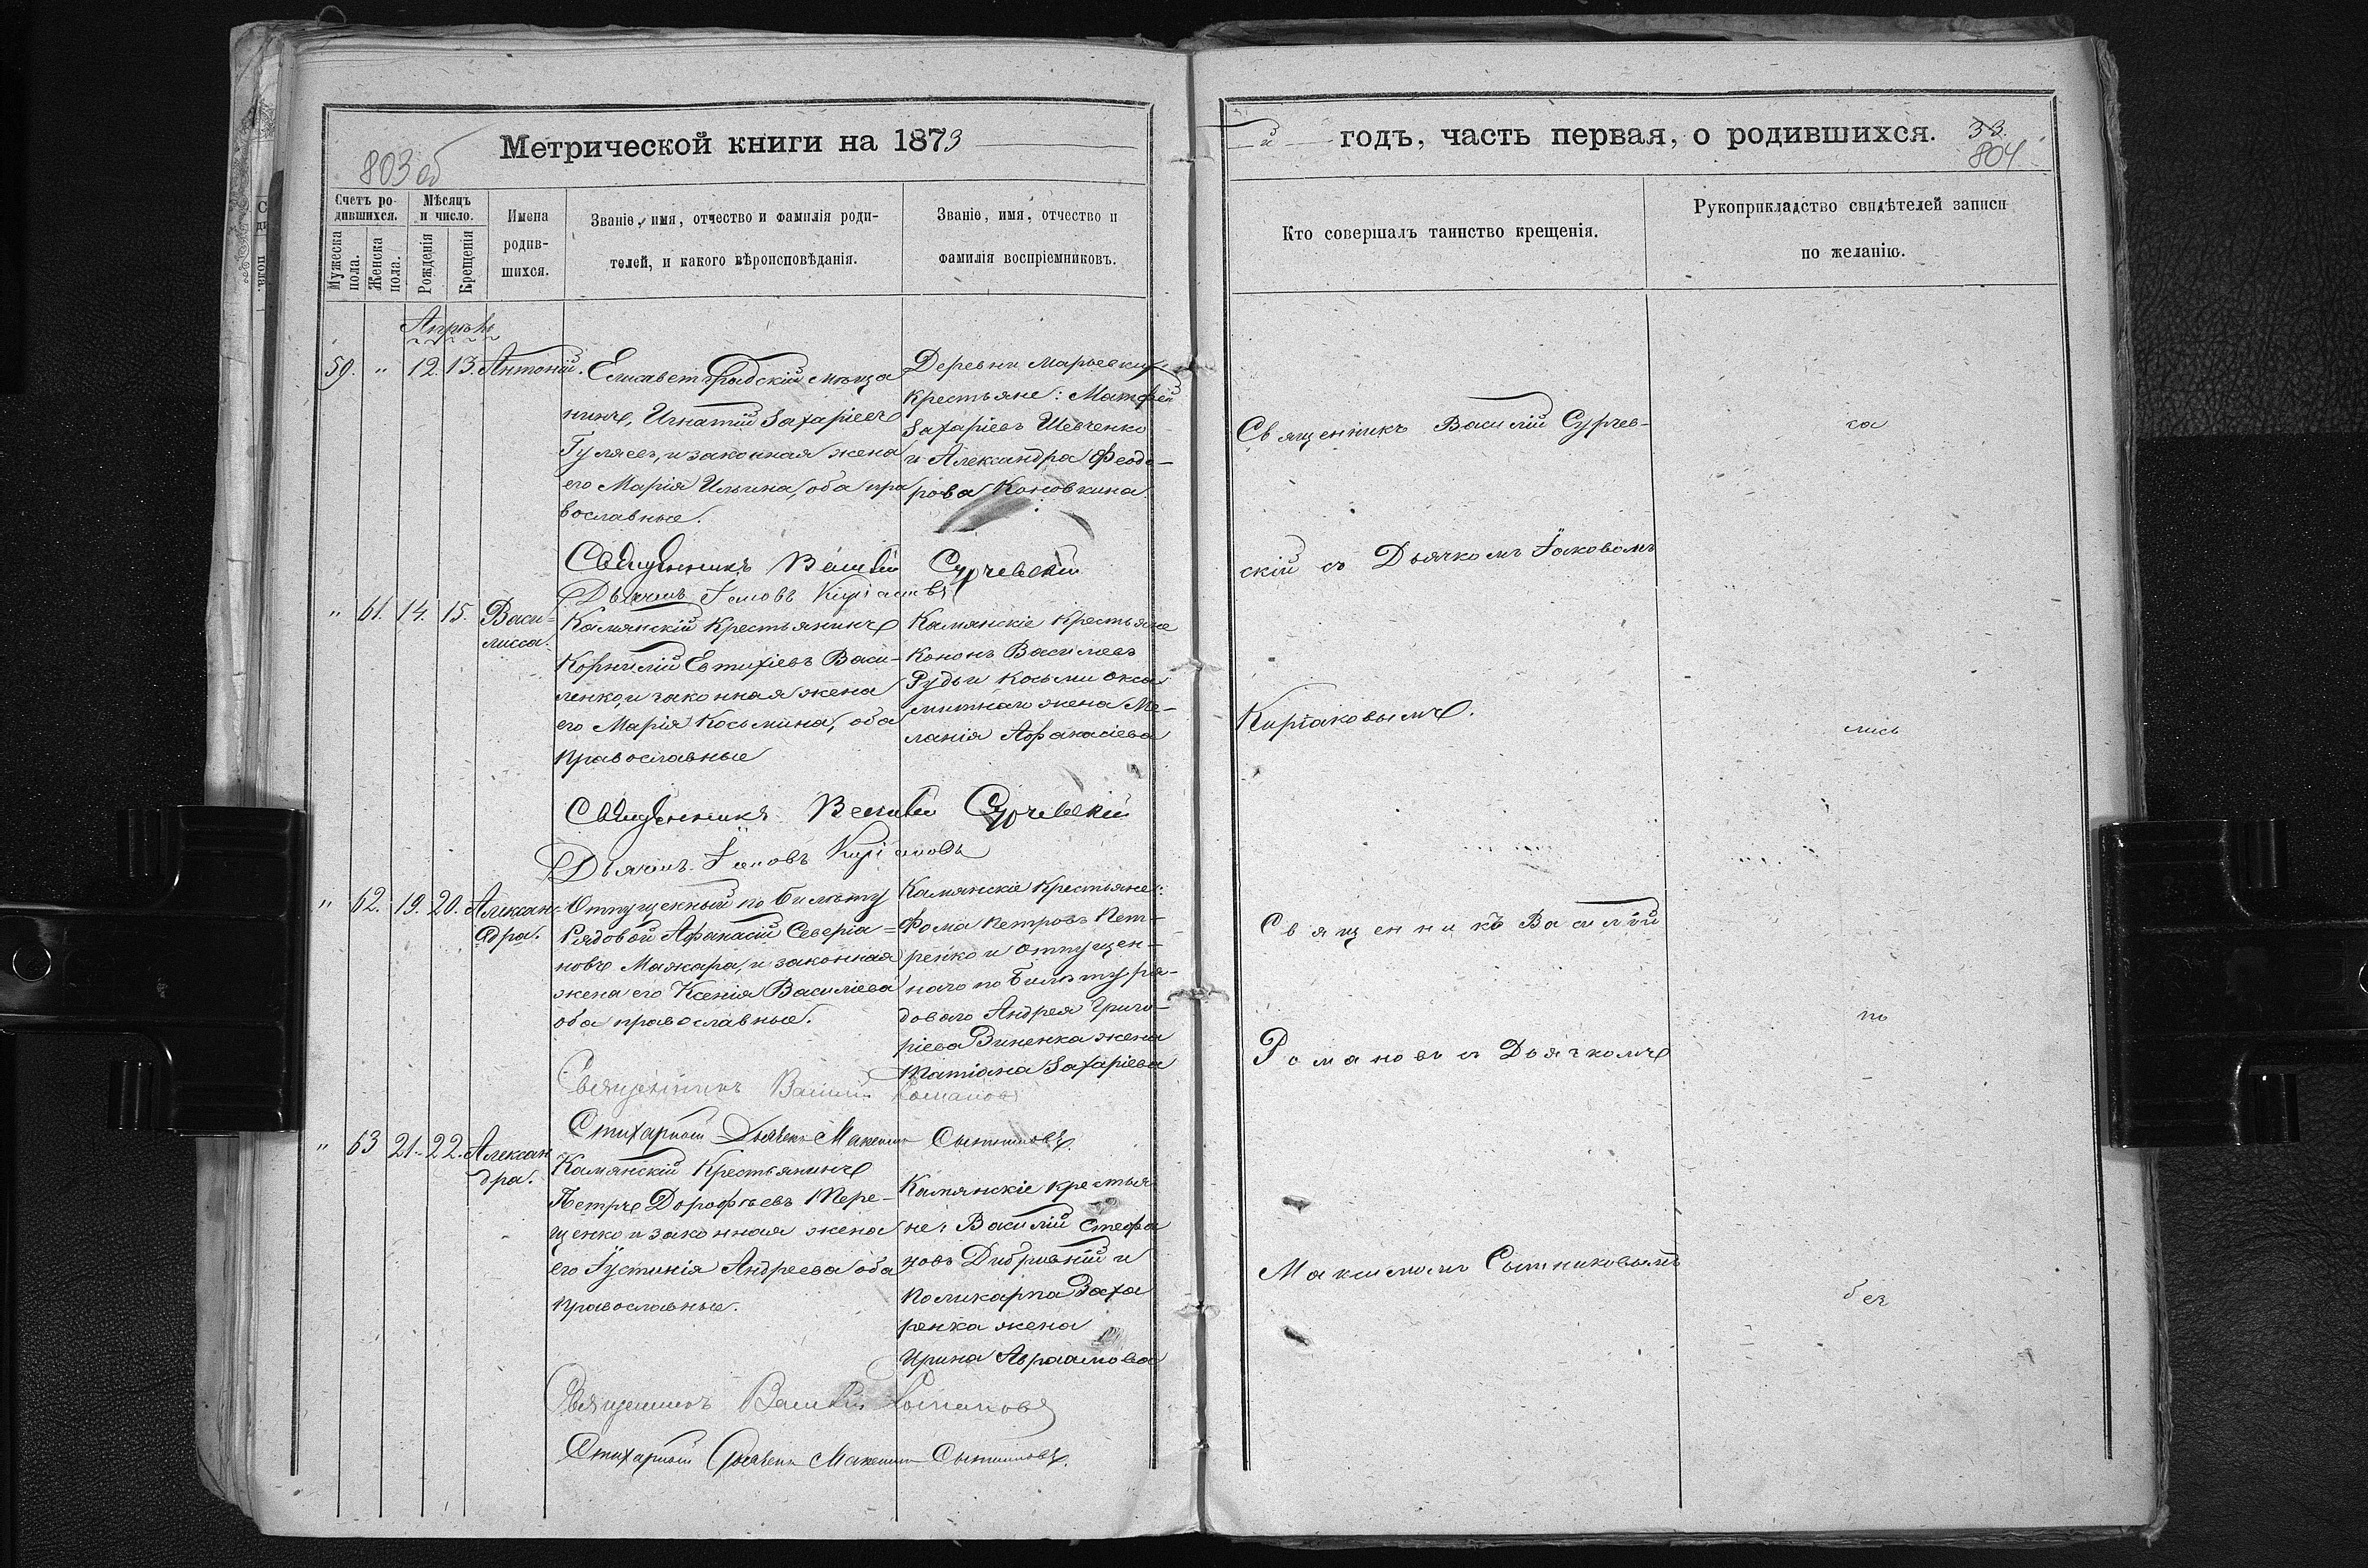 Метрической книги на 1873
803 об
Счетъ ро-
дившихся.
Мужеска пола.
Женска пола.
Мѣсяцъ
и число.
Рожденія
Крещенія
Имена
родив-
шихся.
Званіе, имя, отчество и фамилія роди-
телей, и какого вѣроисповѣданія.
Званіе, имя, отчество и
фамилія воспріемниковъ.
Апрѣль
59. " 12. 13. Антоній.
Елисаветградскій мѣща
нинъ, Игнатій Захаріевъ
Гуляевъ, и законная жена
его Марія Ильина, оба пра
вославные.
Деревни Марьевки
крестьяне: Матфей
Захаріевъ Шевченко
и Александра Феодо-
рова Коновкина.
Священникъ Василій Сурчевскій
Дьячокъ Іаковъ Киріаковъ
" 61. 14. 15. Васи-
лисса.
Камянскій Крестьянинъ
Корнилій Евтихіевъ Васи-
ленко, и законная жена
его Марія Косьмина, оба
православные
Камянскіе Крестьяне
Кононъ Василіевъ
Рудь и Косьмы Окса
митнаго жена Ме-
ланія Афанасіева
Священникъ Василій Сурчевскій
Дьячокъ Іаковъ Киріаковъ
" 62. 19. 20. Алексан-
дра.
Отпущенный по билѣту
Рядовой Афанасій Северіа-
новъ Мажара, и законная
жена его Ксенія Василіева
оба православные.
Камянскіе Крестьяне:
Фома Петровъ Пет-
ренко и отпущен-
наго по билѣту ря-
доваго Андрея Григо-
ріева Зиненка жена
Татіана Захаріева
Священникъ Василій Романовъ
Стихарный Дьячекъ Максимъ Сытниковъ.
" 63 21. 22. Алексан
дра.
Камянскій Крестьянинъ
Петръ Дорофѣевъ Тере-
щенко и законная жена
его Іустинія Андреева оба
православные.
Камянскіе крестья
не: Василій Стефа
новъ Дибривный и
Поликарпа Заха
ренка жена
Ирина Авраамова
Священникъ Василій Романовъ
Стихарный Дьячекъ Максимъ Сытниковъ.
й годъ, часть первая, о родившихся.
33.
804
Кто совершалъ таинство крещенія.
Рукоприкладство свидѣтелей записи
по желанію.
Священникъ Василій Сурчев-
скій съ Дьячкомъ Іаковомъ
Киріаковымъ.
Священникъ Василій
Романовъ съ Дьячкомъ
Максимомъ Сытниковымъ